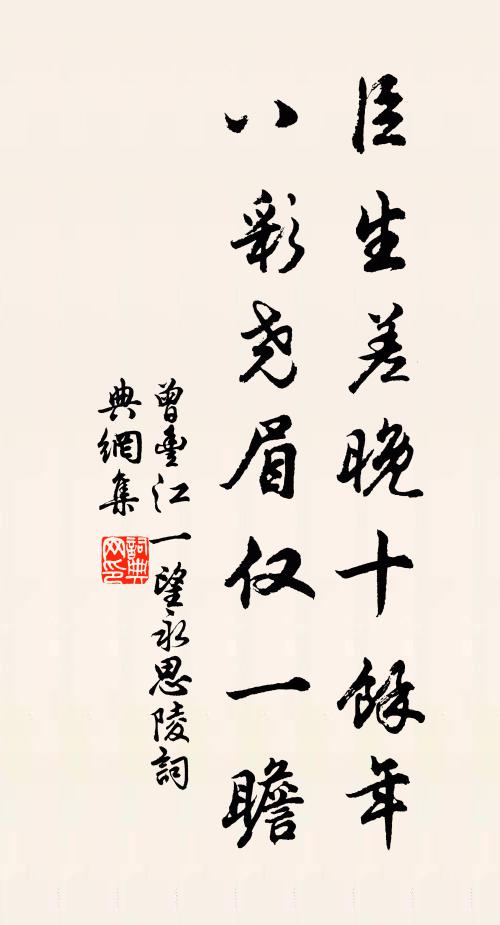 臣生差晚十餘年
八彩尧眉仅一瞻
曾豐江一望永思陵詞
典網集
詞典网印